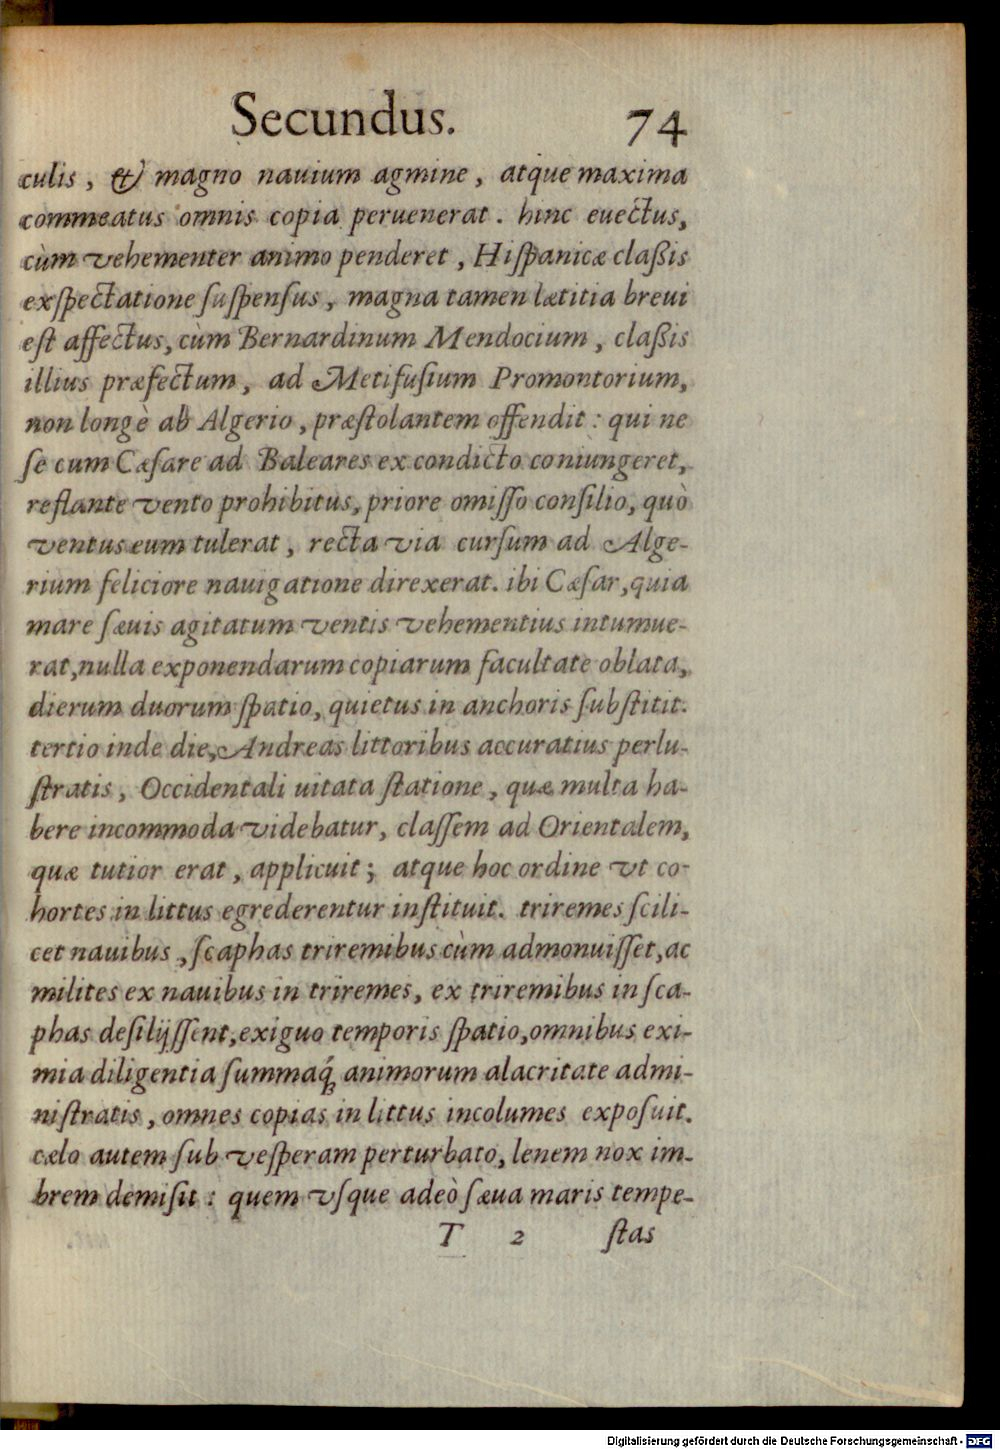 Secundus. 74
culis, & magno nauium agmine, atque maxima
commeatus omnis copia peruenerat. hinc euectus,
cùm vehementer animo penderet, Hiſpanicæ claßis
exſpectatione ſuſpenſus, magna tamen lætitia breui
eſt affectus, cùm Bernardinum Mendocium, claßis
illius præfectum, ad Metifuſium Promontorium,
non longè ab Algerio, præſtolantem offendit: qui ne
ſe cum Cæſare ad Baleares ex condicto coniungeret,
reflante vento prohibitus, priore omiſſo conſilio, quò
ventus eum tulerat, recta via curſum ad Alge-
rium feliciore nauigatione direxerat. ibi Cæſar, quia
mare ſæuis agitatum ventis vehementius intumue-
rat, nulla exponendarum copiarum facultate oblata,
dierum duorum ſpatio, quietus in anchoris ſubſtitit.
tertio inde die, Andreas littoribus accuratius perlu-
ſtratis, Occidentali uitata ſtatione, quæ multa ha-
bere incommoda videbatur, claſſem ad Orientalem,
quæ tutior erat, applicuit; atque hoc ordine vt co-
hortes in littus egrederentur inſtituit. triremes ſcili-
cet nauibus, ſcaphas triremibus cùm admonuiſſet, ac
milites ex nauibus in triremes, ex triremibus in ſca-
phas deſilijſſent, exiguo temporis ſpatio, omnibus exi-
mia diligentia ſummaq́ꝫ animorum alacritate admi-
niſtratis, omnes copias in littus incolumes expoſuit.
cælo autem ſub veſperam perturbato, lenem nox im-
brem demiſit: quem vſque adeò ſæua maris tempe-
T 2 ſtas
Digitalisierung gefördert durch die Deutsche Forschungsgemeinschaft - DFG